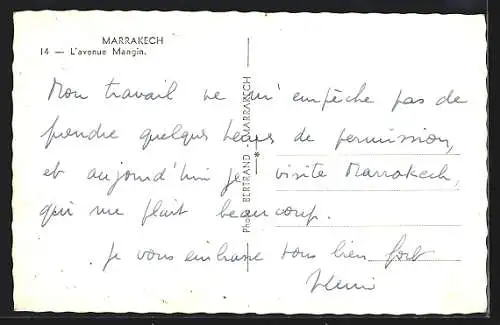 MARRAKECH
14 — L'avenue Mangin.
Mon travail ne m'empêche pas de
prendre quelques heures de permission,
et aujourd'hui je visite Marrakech,
qui me plait beaucoup.
Je vous embrasse tous bien fort
Henri
Photo BERTRAND - MARRAKECH